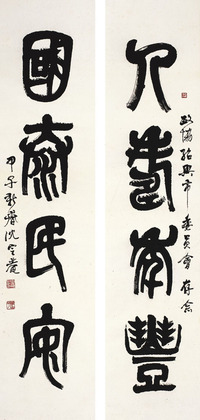 政協紹興市委員會存念
人壽年豐
國泰民安
甲子新歲沈定菴